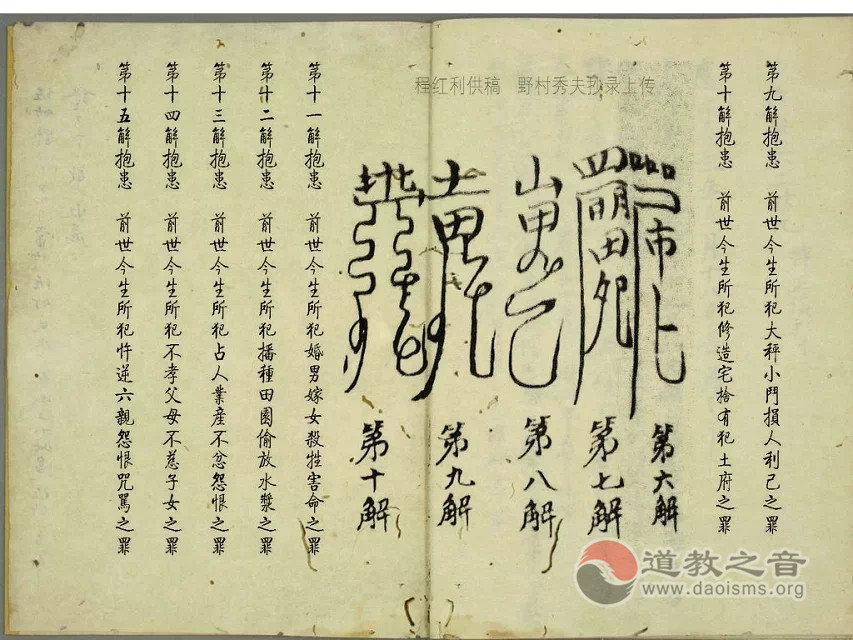 程红利供稿 野村秀夫抄录上传
第九解抱患 前世今生所犯大秤小鬥損人利己之罪
第十解抱患 前世今生所犯修造宅捨有犯土府之罪
第六解
第七解
第八解
第九解
第十解
第十一解抱患 前世今生所犯婚男嫁女殺牲害命之罪
第十二解抱患 前世今生所犯播種田園偷放水漿之罪
第十三解抱患 前世今生所犯占人業産不忿怨恨之罪
第十四解抱患 前世今生所犯不孝父母不慈子女之罪
第十五解抱患 前世今生所犯忤逆六親怨恨咒罵之罪
道教之音
www.daoisms.org